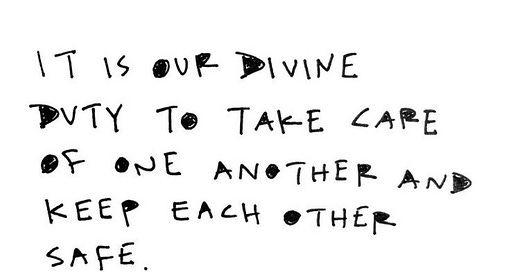 IT IS OUR DIVINE
DUTY TO TAKE CARE
OF ONE ANOTHER AND
KEEP EACH OTHER
SAFE.